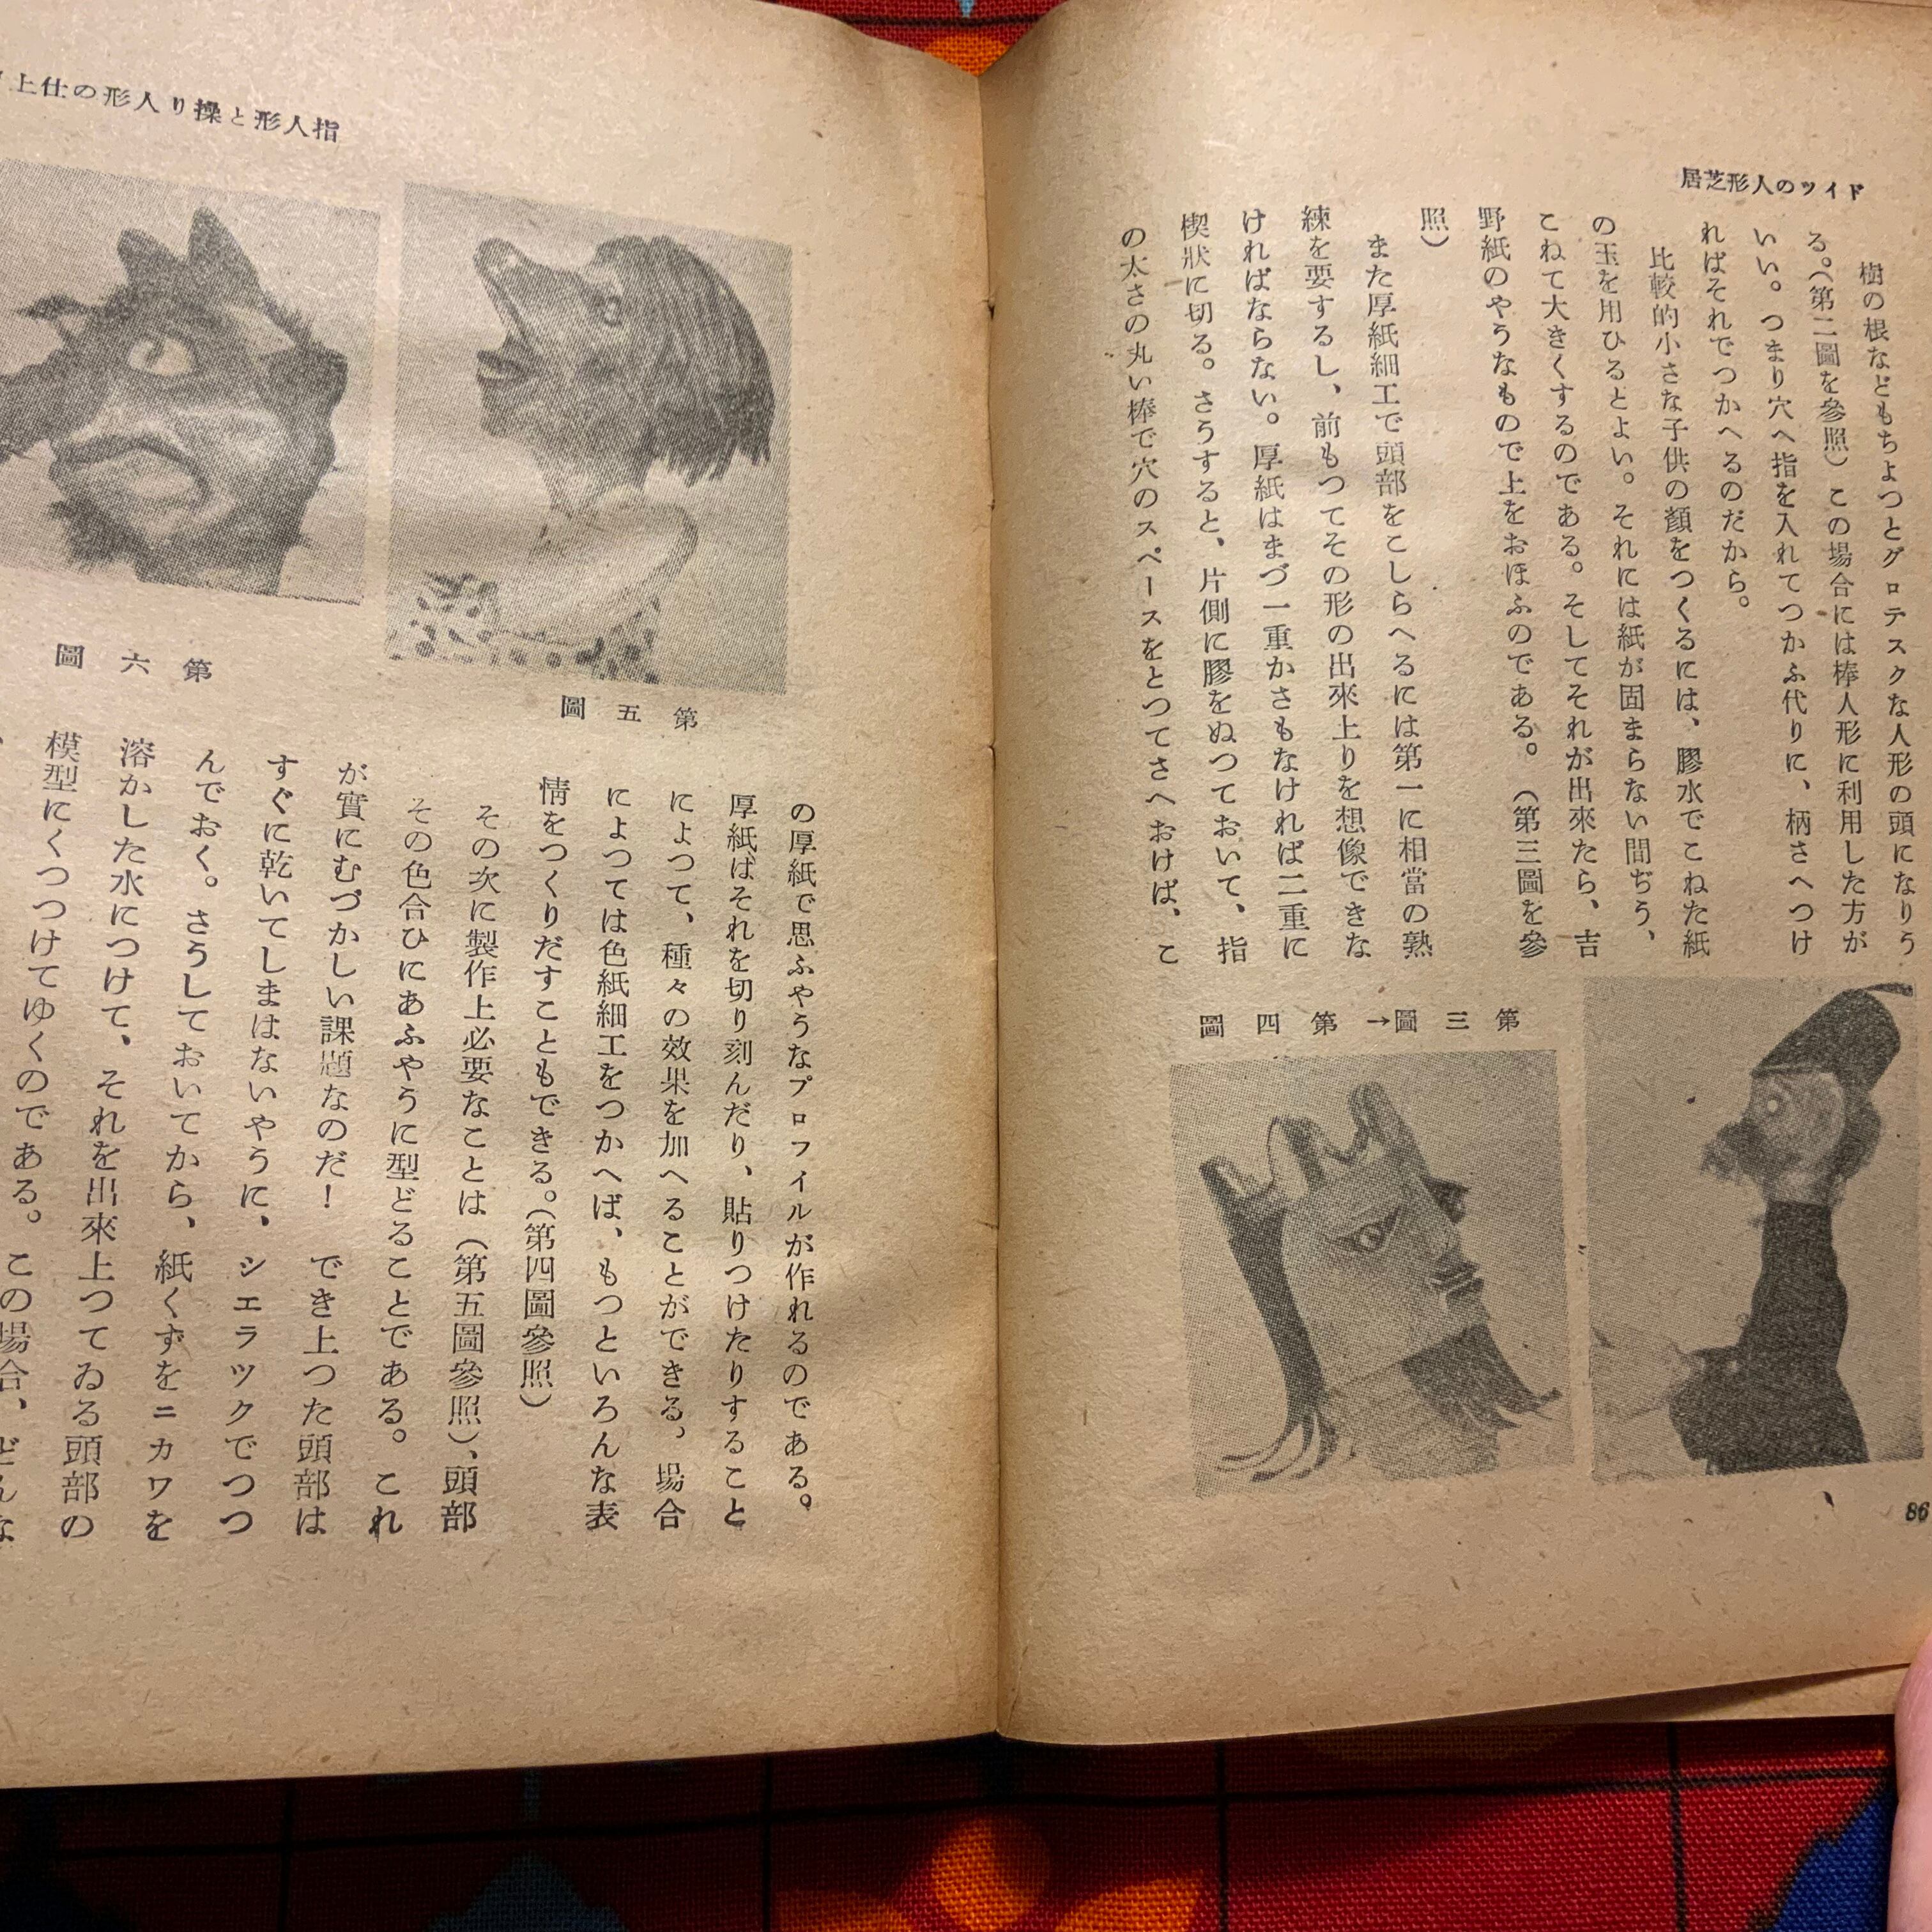 居芝形人のツイド
樹の根などもちよつとグロテスクな人形の頭になりう
る。(第二圖を參照)この場合には棒人形に利用した方が
いい。つまり穴へ指を入れてつかふ代りに、柄さへつけ
ればそれでつかへるのだから。
比較的小さな子供の顏をつくるには、膠水でこねた紙
の玉を用ひるとよい。それには紙が固まらない間ぢう、
こねて大きくするのである。そしてそれが出來たら、吉
野紙のやうなもので上をおほふのである。(第三圖を參
照)
また厚紙細工で頭部をこしらへるには第一に相當の熟
練を要するし、前もつてその形の出來上りを想像できな
ければならない。厚紙はまづ一重かさもなければ二重に
楔狀に切る。さうすると、片側に膠をぬつておいて、指
の太さの丸い棒で穴のスペースをとつてさへおけば、こ
圖四第→圖三第
86
上仕の形人り操と形人指
圖五第
圖六第
の厚紙で思ふやうなプロフイルが作れるのである。
厚紙ばそれを切り刻んだり、貼りつけたりすること
によつて、種々の效果を加へることができる。場合
によつては色紙細工をつかへば、もつといろんな表
情をつくりだすこともできる。(第四圖參照)
その次に製作上必要なことは(第五圖參照)、頭部
その色合ひにあふやうに型どることである。これ
が實にむづかしい課題なのだ!でき上つた頭部は
すぐに乾いてしまはないやうに、シエラツクでつつ
んでおく。さうしておいてから、紙くずをニカワを
溶かした水につけて、それを出來上つてゐる頭部の
模型にくつつけてゆくのである。この場合、どんな